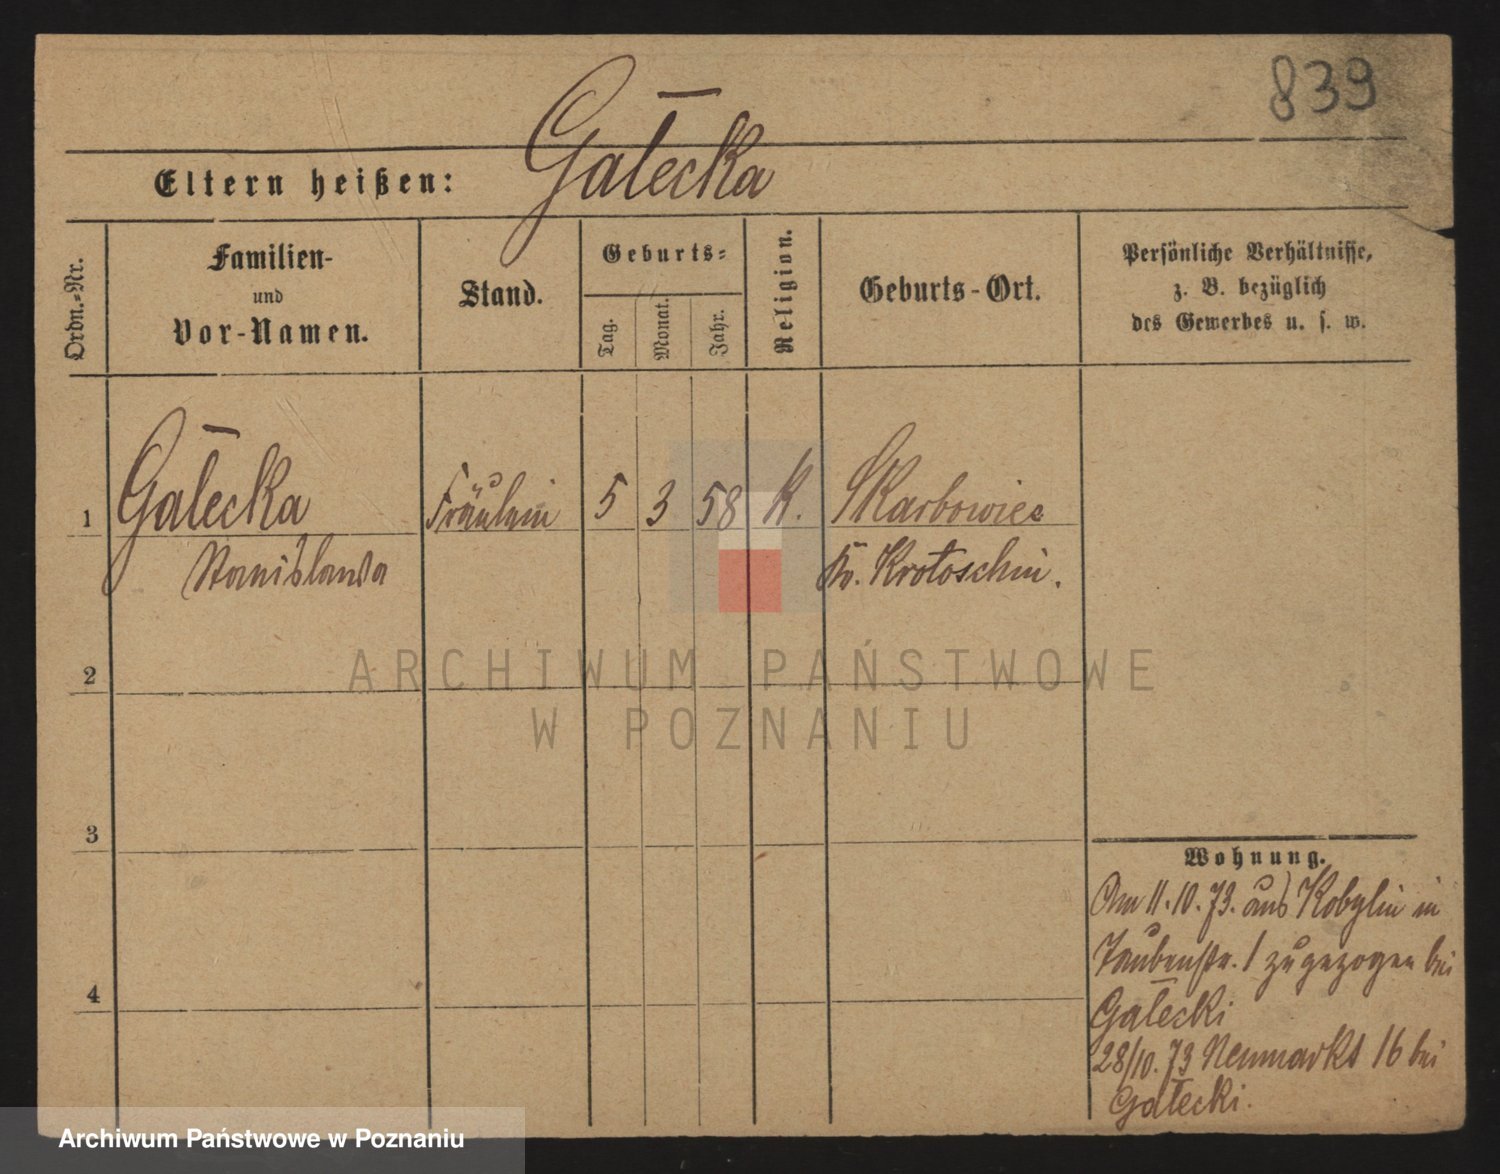 839
Gałecka
Eltern heißen:
Ordn.-Nr.
Familien-
und
Vor-Namen.
Stand.
Geburts-
Tag.
Monat.
Jahr.
Religion.
Geburts-Ort.
Persönliche Verhältnisse,
z. B. bezüglich
des Gewerbes u. s. w.
1 Gałecka Fräulein 5 3 58 K. Skarbowiec
Stanislawa Kr. Krotoschin.
2
3
4
Wohnung.
Am 11.10.73. aus Kobylin in
Taubenstr. 1 zugezogen bei
Gałecki
28/10.73 Neumarkt 16 bei
Gałecki.
ARCHIWUM PAŃSTWOWE
W POZNANIU
Archiwum Państwowe w Poznaniu